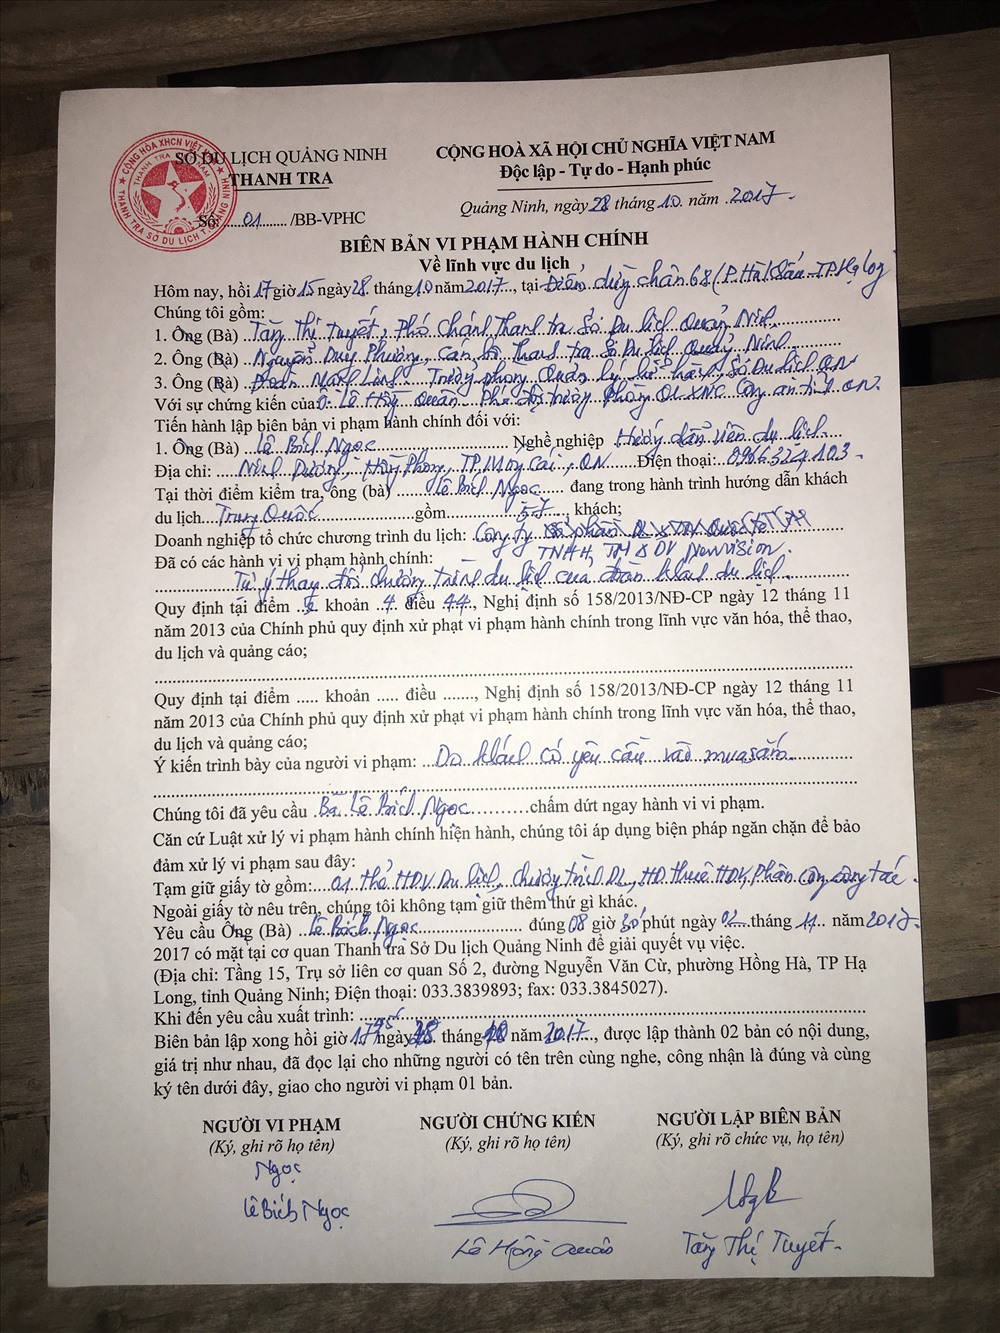 CỘNG HÒA XHCN VIỆT NAM
THANH TRA
THANH TRA SỞ DU LỊCH T. QUẢNG NINH
SỞ DU LỊCH QUẢNG NINH
THANH TRA
Số: 01 /BB-VPHC
CỘNG HOÀ XÃ HỘI CHỦ NGHĨA VIỆT NAM
Độc lập - Tự do - Hạnh phúc
Quảng Ninh, ngày 28 tháng 10 năm 2017
BIÊN BẢN VI PHẠM HÀNH CHÍNH
Về lĩnh vực du lịch
Hôm nay, hồi 17 giờ 15 ngày 28 tháng 10 năm 2017, tại Điểm dừng chân 68 (P. Hà Khẩu - TP. Hạ Long)
Chúng tôi gồm:
1. Ông (Bà) Tăng Thị Tuyết, Phó chánh Thanh tra Sở Du lịch Quảng Ninh
2. Ông (Bà) Nguyễn Duy Phương, cán bộ Thanh tra Sở Du lịch Quảng Ninh
3. Ông (Bà) Đoàn Mạnh Linh - Trưởng phòng Quản lý lữ hành, Sở Du lịch QN
Với sự chứng kiến của: Ô. Lê Hồng Quân Phó đội trưởng Phòng QL XNC Công an tỉnh QN.
Tiến hành lập biên bản vi phạm hành chính đối với:
1. Ông (Bà) Lê Bích Ngọc Nghề nghiệp Hướng dẫn viên du lịch
Địa chỉ: Ninh Dương, TP. Móng Cái, QN Điện thoại: 0966324103
Tại thời điểm kiểm tra, ông (bà) Lê Bích Ngọc đang trong hành trình hướng dẫn khách
du lịch Trung Quốc gồm 57, khách;
Doanh nghiệp tổ chức chương trình du lịch: Công ty
Đã có các hành vi vi phạm hành chính: TNHH, TM & DV Newvision.
Tự ý thay đổi chương trình du lịch của đoàn khách du lịch.
Quy định tại điểm khoản 4 điều 44, Nghị định số 158/2013/NĐ-CP ngày 12 tháng 11
năm 2013 của Chính phủ quy định xử phạt vi phạm hành chính trong lĩnh vực văn hóa, thể thao,
du lịch và quảng cáo;
Quy định tại điểm ..... khoản ..... điều ......., Nghị định số 158/2013/NĐ-CP ngày 12 tháng 11
năm 2013 của Chính phủ quy định xử phạt vi phạm hành chính trong lĩnh vực văn hóa, thể thao,
du lịch và quảng cáo;
Ý kiến trình bày của người vi phạm: Do khách có yêu cầu vào mua sắm
Chúng tôi đã yêu cầu Bà Lê Bích Ngọc chấm dứt ngay hành vi vi phạm.
Căn cứ Luật xử lý vi phạm hành chính hiện hành, chúng tôi áp dụng biện pháp ngăn chặn để bảo
đảm xử lý vi phạm sau đây:
Tạm giữ giấy tờ gồm: 01 thẻ HDV Du lịch, chương trình DL, HĐ thuê HDV, Phân công công tác.
Ngoài giấy tờ nêu trên, chúng tôi không tạm giữ thêm thứ gì khác.
Yêu cầu Ông (Bà) Lê Bích Ngọc đúng 08 giờ 30 phút ngày 02 tháng 11 năm 2017
2017 có mặt tại cơ quan Thanh tra Sở Du lịch Quảng Ninh để giải quyết vụ việc.
(Địa chỉ: Tầng 15, Trụ sở liên cơ quan Số 2, đường Nguyễn Văn Cừ, phường Hồng Hà, TP Hạ
Long, tỉnh Quảng Ninh; Điện thoại: 033.3839893; fax: 033.3845027).
Khi đến yêu cầu xuất trình:
Biên bản lập xong hồi giờ 17 ngày 28 tháng 10 năm 2017, được lập thành 02 bản có nội dung,
giá trị như nhau, đã đọc lại cho những người có tên trên cùng nghe, công nhận là đúng và cùng
ký tên dưới đây, giao cho người vi phạm 01 bản.
NGƯỜI VI PHẠM
(Ký, ghi rõ họ tên)
Ngọc
Lê Bích Ngọc
NGƯỜI CHỨNG KIẾN
(Ký, ghi rõ họ tên)
Lê Hồng Quân
NGƯỜI LẬP BIÊN BẢN
(Ký, ghi rõ chức vụ, họ tên)
Tăng Thị Tuyết